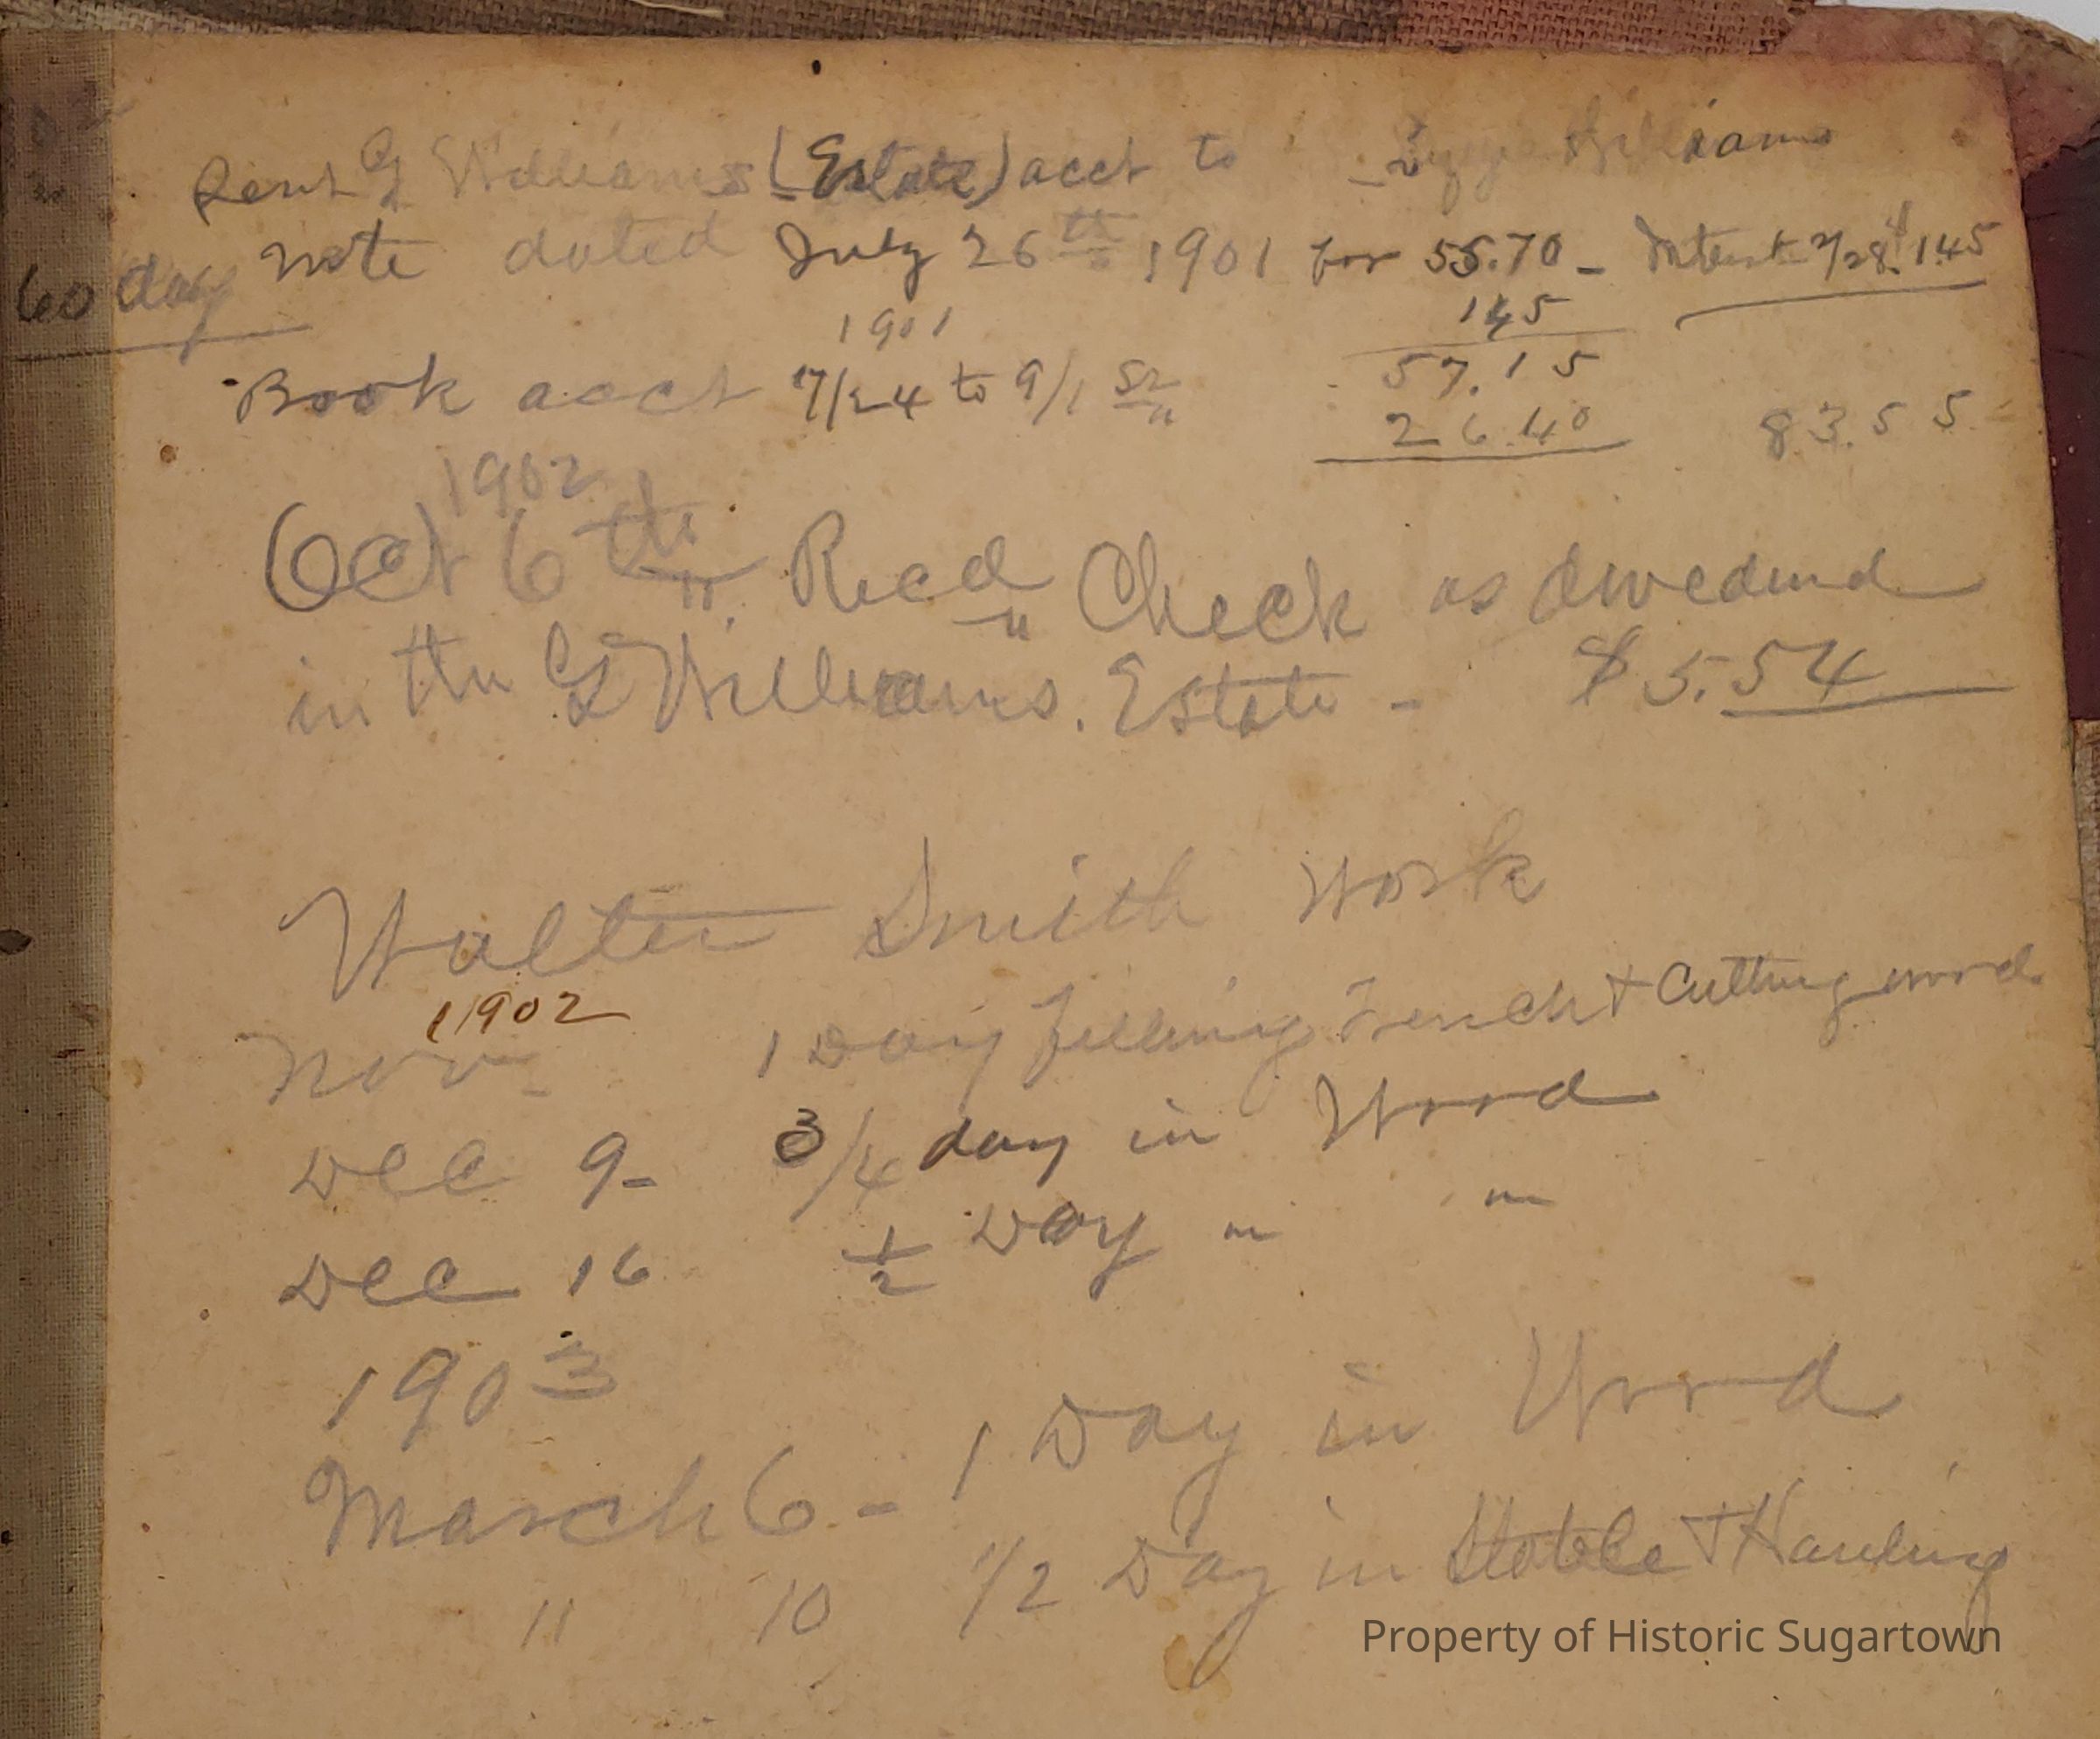 Sent G Williams (Estate) acct to Williams
60 day note dated July 26th 1901 for 55.70 - Interest 145
145
1901
57.15
Book acct 7/24 to 9/1
26.40 83.55
1902
Oct 6th Recd Check as dividend
in the G Williams. Estate - $5.54
Walter Smith Work
1902
Nov 1 Day filling Trench + Cutting wood
Dec 9- 3/4 day in Wood
Dec 16 1/2 Day " "
1903
March 6 - 1 Day in Wood
" 10 1/2 Day in Stable + Hauling
Property of Historic Sugartown